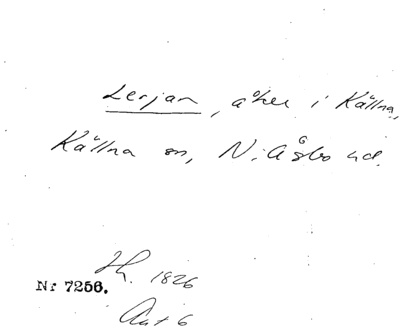 Lerjan, åker i Källna,
Källna sn, N. Åsbo hd.
H. 1826
Nr 7256.
Akt 6